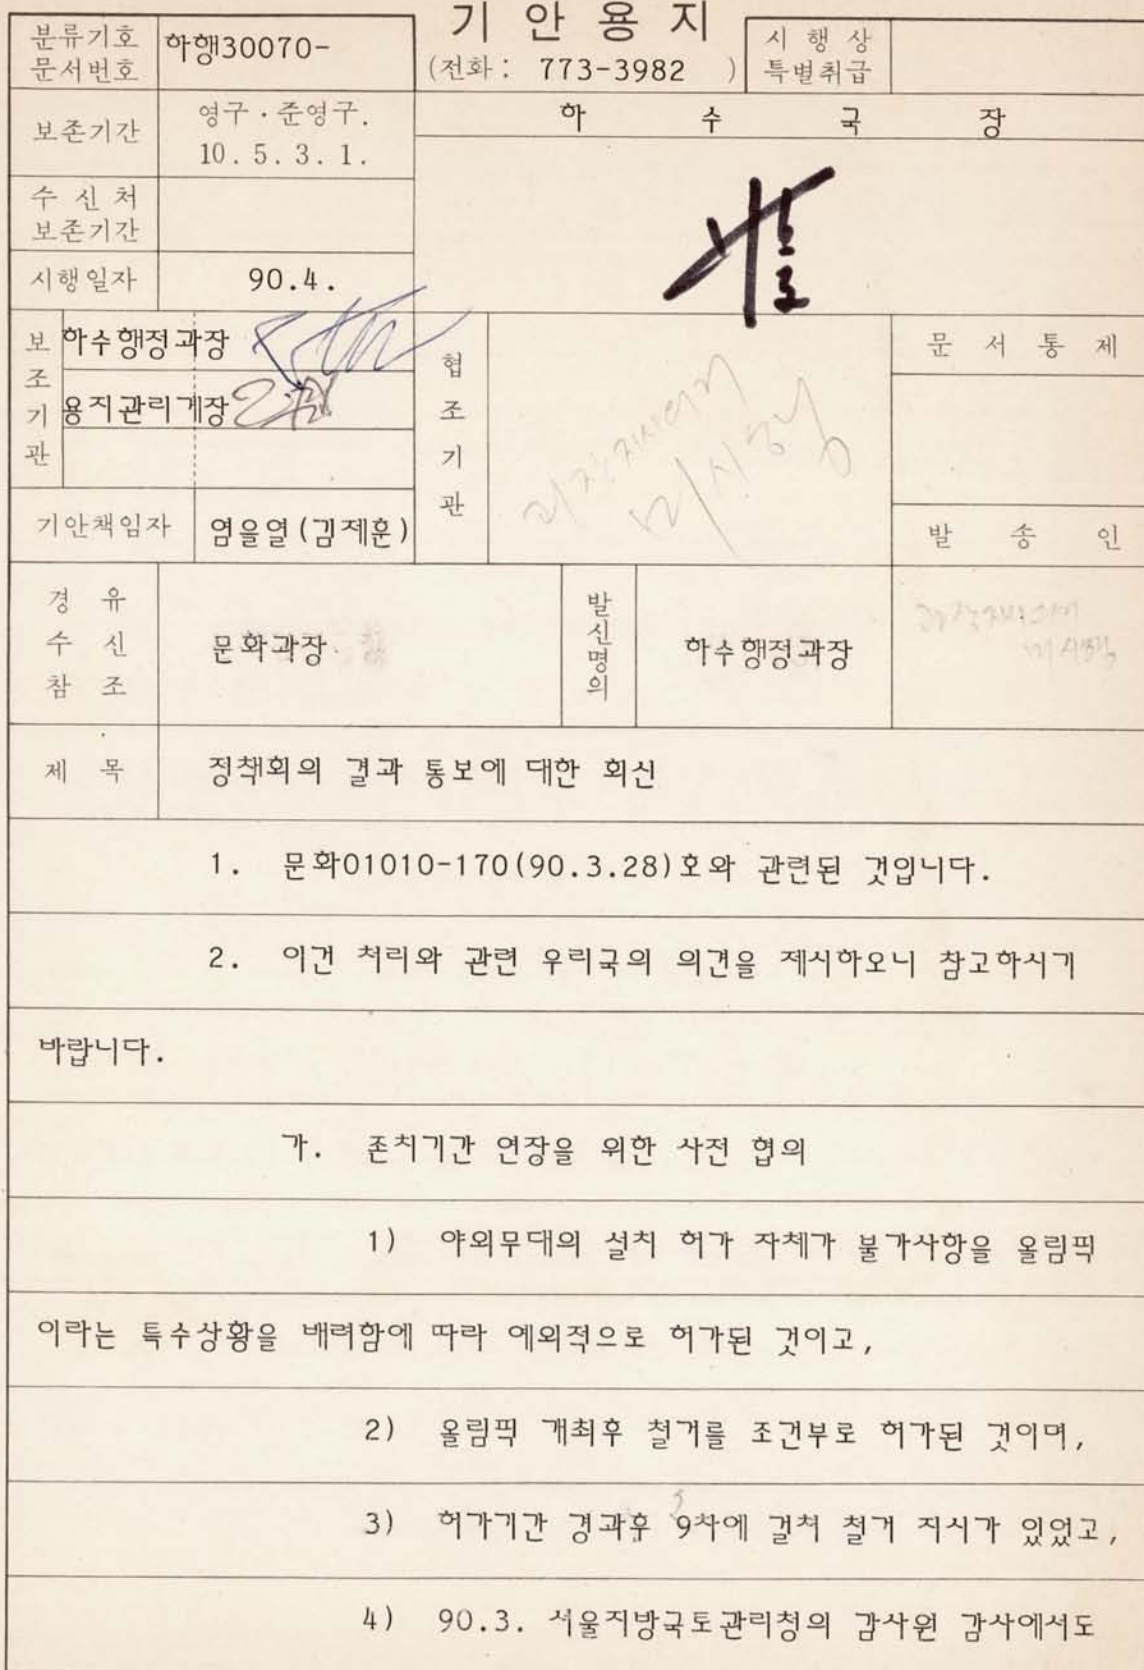 기 안 용 지
분류기호
문서번호
하행30070-
(전화 : 773-3982 )
시 행 상
특별취급
보존기간
영구 · 준영구.
10 . 5 . 3 . 1 .
하 수 국 장
수 신 처
보존기간
시행일자
90.4.
보조기관
하수행정과장
용지관리계장
협조기관
과장지시에의거
미시행
문 서 통 제
기안책임자
염을열(김제훈)
발 송 인
경 유
수 신
참 조
문화과장
발신명의
하수행정과장
미시행
제 목
정책회의 결과 통보에 대한 회신
1. 문화01010-170(90.3.28)호와 관련된 것입니다.
2. 이건 처리와 관련 우리국의 의견을 제시하오니 참고하시기
바랍니다.
가. 존치기간 연장을 위한 사전 협의
1) 야외무대의 설치 허가 자체가 불가사항을 올림픽
이라는 특수상황을 배려함에 따라 예외적으로 허가된 것이고,
2) 올림픽 개최후 철거를 조건부로 허가된 것이며,
3) 허가기간 경과후 9차에 걸쳐 철거 지시가 있었고,
4) 90.3. 서울지방국토관리청의 감사원 감사에서도